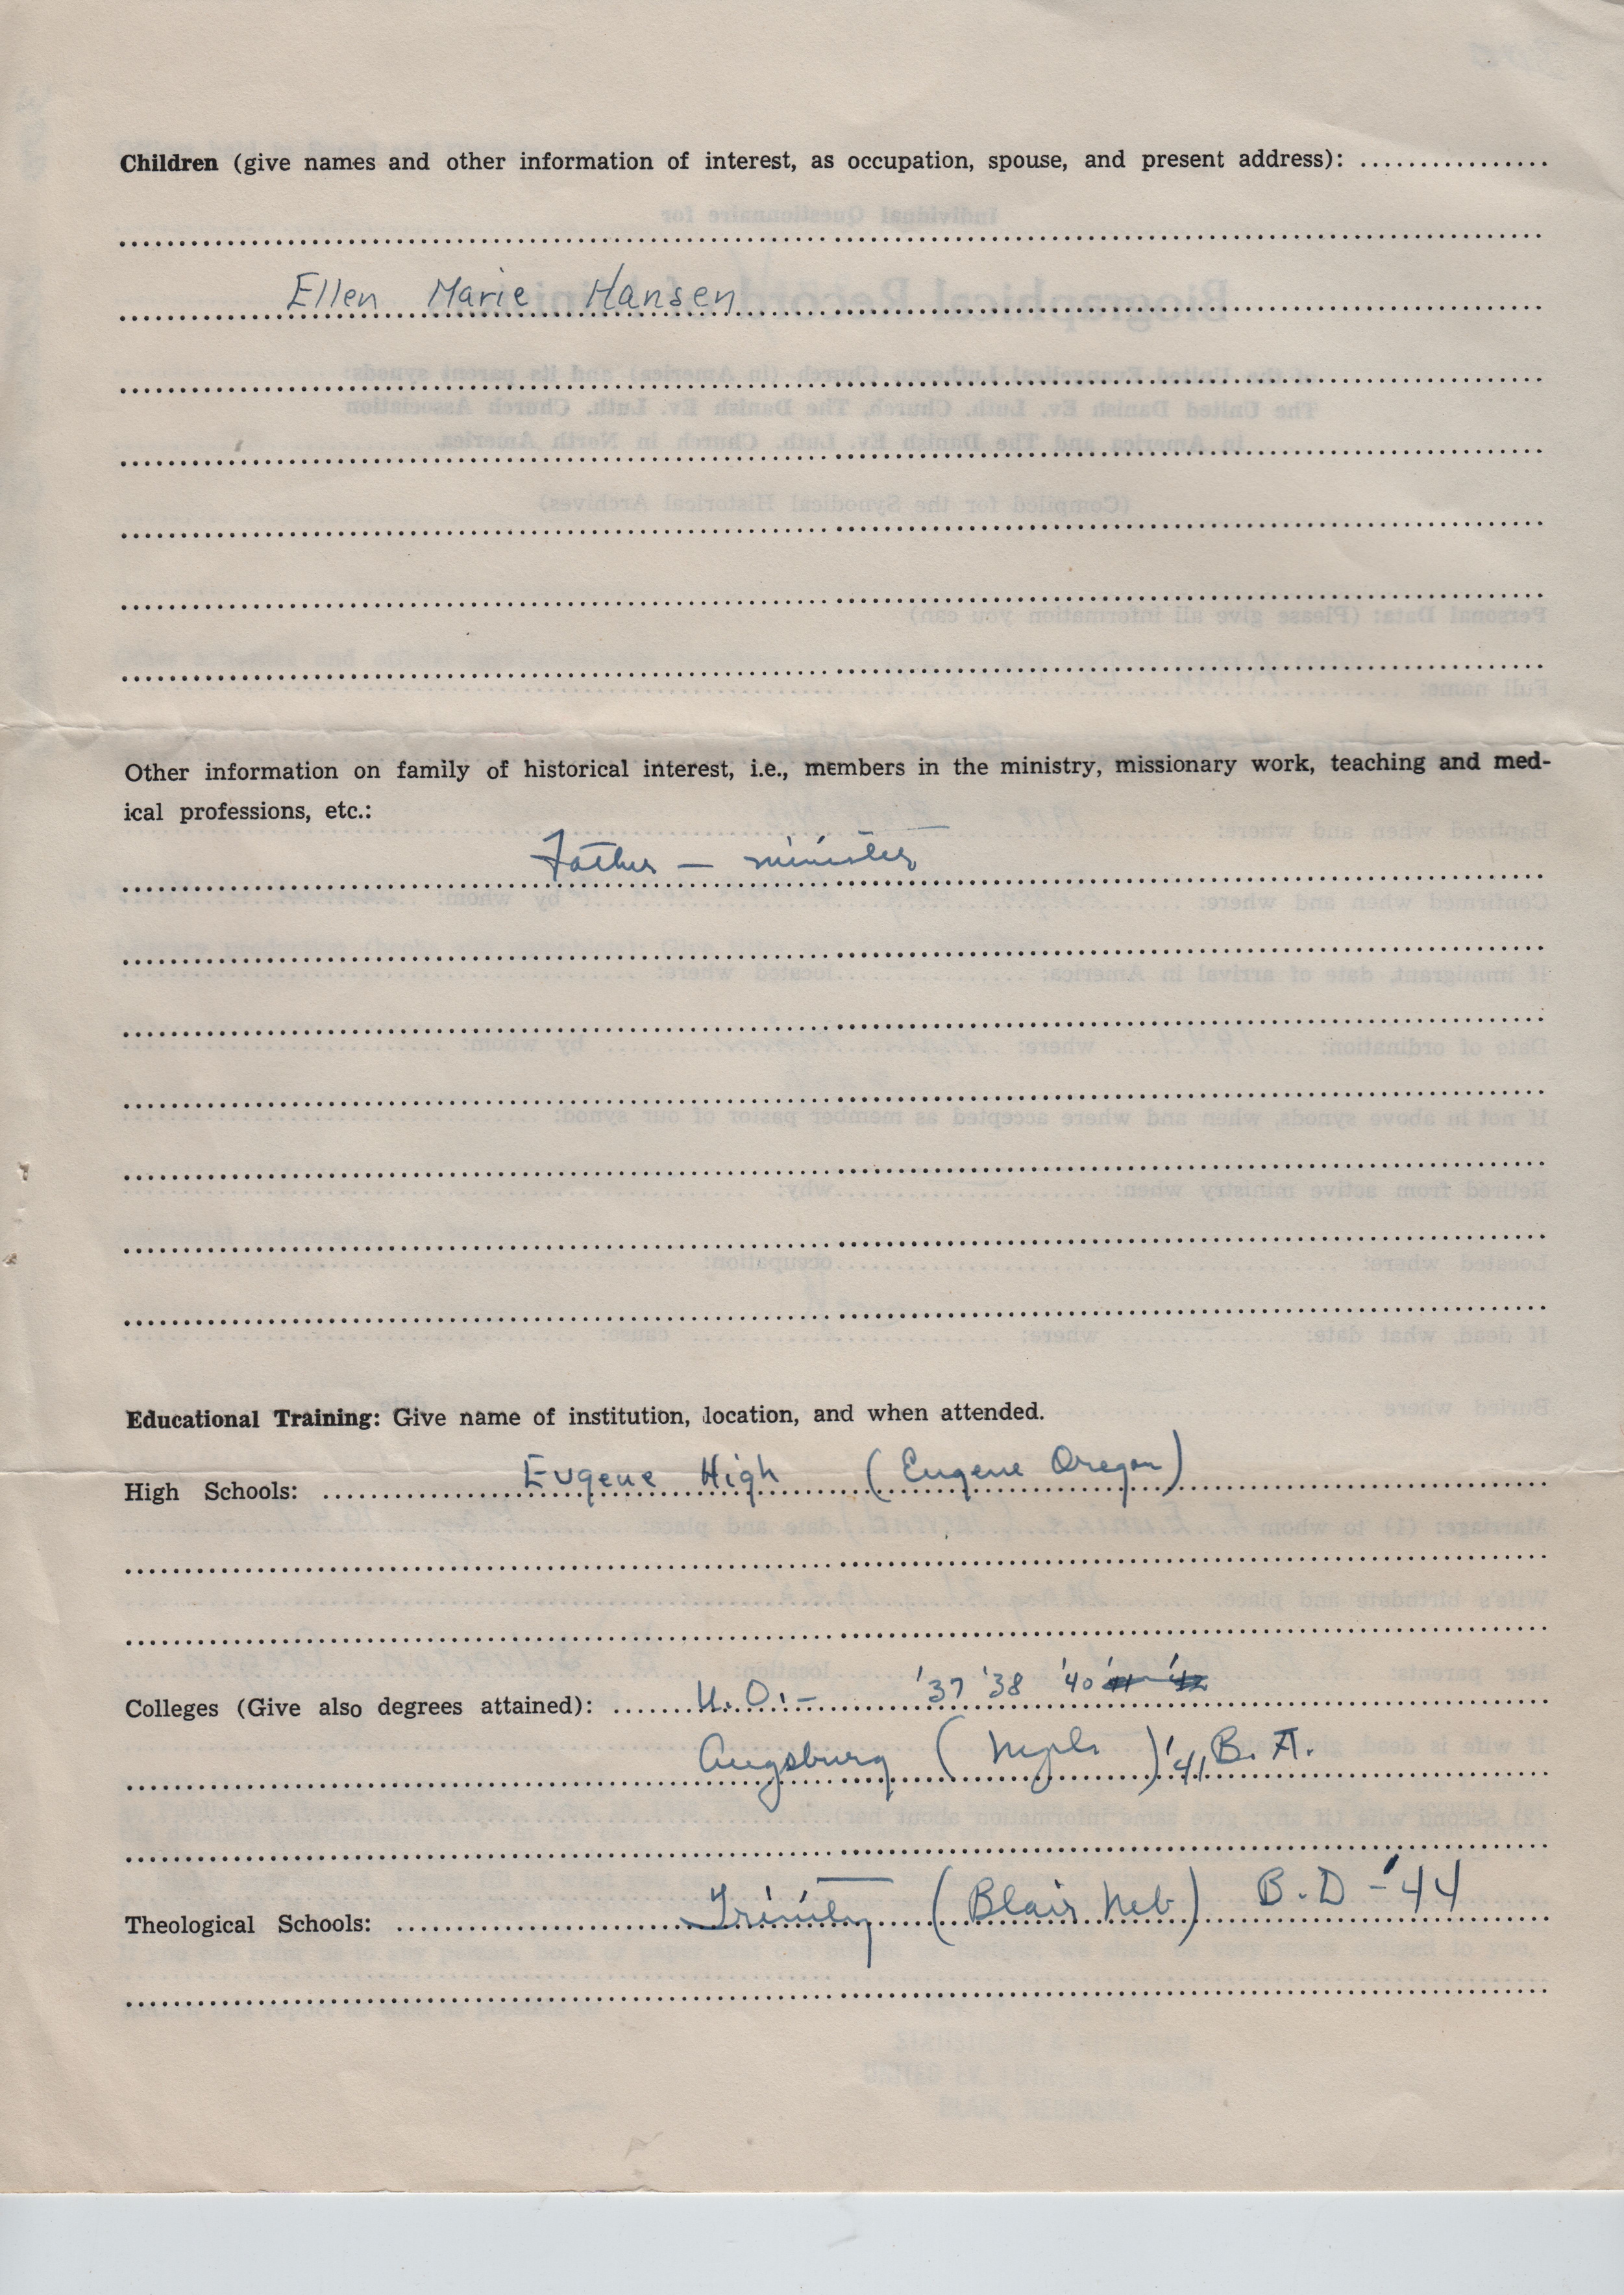 Children (give names and other information of interest, as occupation, spouse, and present address):
Ellen Marie Hansen
Other information on family of historical interest, i.e., members in the ministry, missionary work, teaching and med-
ical professions, etc.:
Father — minister
Educational Training: Give name of institution, location, and when attended.
High Schools: Eugene High (Eugene Oregon)
Colleges (Give also degrees attained): U. O. - '37 '38 '40 '41 '42
Augsburg (Mpls) '41 B. A.
Theological Schools: Trinity (Blair Neb) B.D - '44